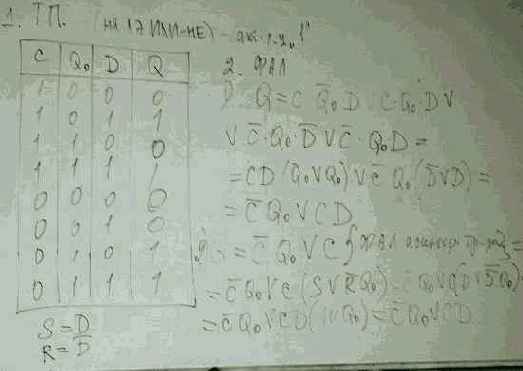 1. ТП. (на ИЛИ-НЕ) –
C Q₀ D Q
1 0 0 0
1 0 1 1
1 1 0 0
1 1 1 1
0 0 0 0
0 0 1 0
0 1 0 1
0 1 1 1
S = D
R = D̄
2. ФАЛ
Q = C Q̄₀ D ∨ C Q₀ D ∨
∨ C̄·Q₀·D̄ ∨ C̄·Q₀D =
= CD (Q̄₀ ∨ Q₀) ∨ C̄ Q₀ (D̄ ∨ D) =
= C̄ Q₀ ∨ CD
= C̄ Q₀ ∨ C {ФАЛ } =
= C̄ Q₀ ∨ C (S ∨ R̄ Q₀) = C̄ Q₀ ∨
= C̄ Q₀ ∨ CD (1 ∨ Q₀) = C̄ Q₀ ∨ CD